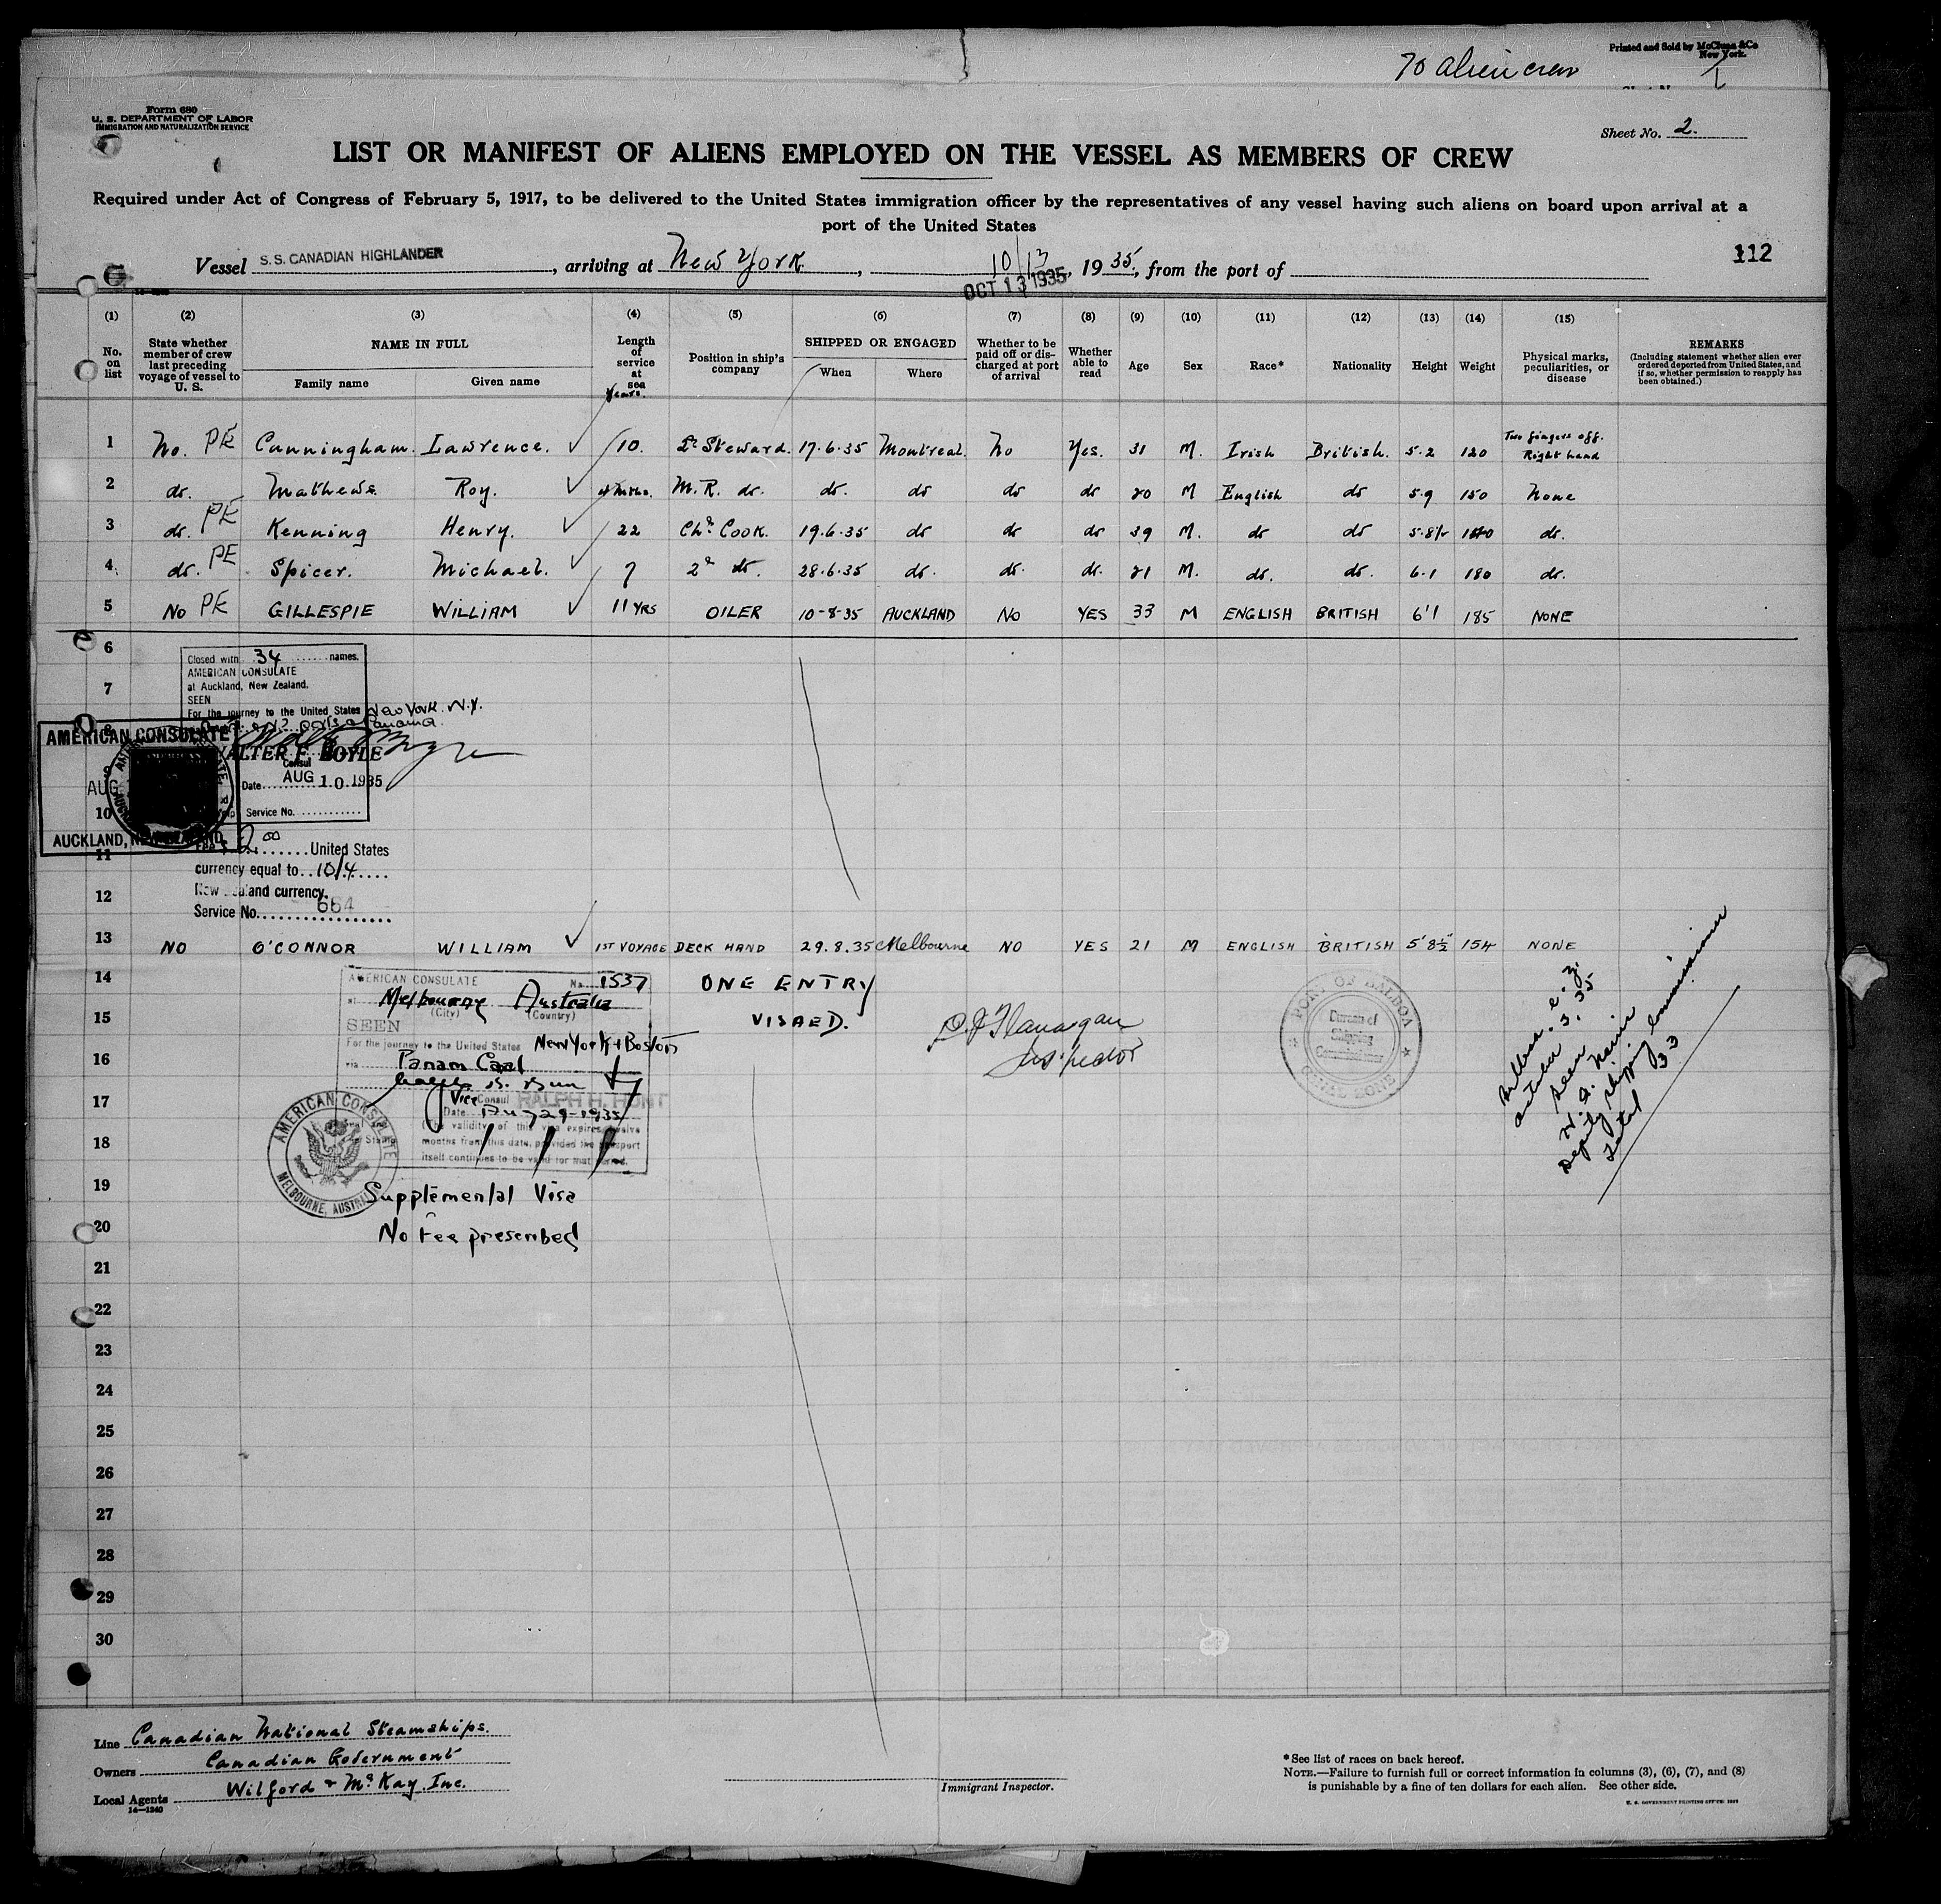 Printed and Sold by McClunn & Co
New York.
70 alien crew
1
Form 680
U. S. DEPARTMENT OF LABOR
IMMIGRATION AND NATURALIZATION SERVICE
Sheet No. 2.
LIST OR MANIFEST OF ALIENS EMPLOYED ON THE VESSEL AS MEMBERS OF CREW
Required under Act of Congress of February 5, 1917, to be delivered to the United States immigration officer by the representatives of any vessel having such aliens on board upon arrival at a
port of the United States
112
Vessel S.S. CANADIAN HIGHLANDER, arriving at New York, 10/13, 1935, from the port of
OCT 13 1935
(1) (2) (3) (4) (5) (6) (7) (8) (9) (10) (11) (12) (13) (14) (15)
No. on list
State whether member of crew last preceding voyage of vessel to U. S.
NAME IN FULL
Family name Given name
Length of service at sea
Years.
Position in ship's company
SHIPPED OR ENGAGED
When Where
Whether to be paid off or discharged at port of arrival
Whether able to read
Age Sex Race* Nationality Height Weight
Physical marks, peculiarities, or disease
REMARKS
(Including statement whether alien ever ordered deported from United States, and if so, whether permission to reapply has been obtained.)
1 No. PE Cunningham. Lawrence. 10. Steward. 17.6.35 Montreal. No Yes. 31 M. Irish British. 5.2 120 Two fingers off. Right hand
2 do. Mathews. Roy. 4 mths. M.R. do. do. do do do 20 M English do 5.9 150 None
3 do. PE Kenning Henry. 22 Chf Cook. 19.6.35 do do do 39 M. do do 5.8½ do.
4 do. PE Spicer. Michael. 7 2d do. 28.6.35 do. do. do. 21 M. do. do. 6.1 180 do.
5 No PE GILLESPIE WILLIAM 11 YRS OILER 10-8-35 AUCKLAND NO YES 33 M ENGLISH BRITISH 6'1 185 NONE
6
Closed with 34 names.
AMERICAN CONSULATE
at Auckland, New Zealand.
7
SEEN
For the journey to the United States New York. N.Y.
8
AMERICAN CONSULATE
WALTER F. BOYLE
Consul
9
AUG
Date AUG 10 1935
10
Service No.
AUCKLAND, NEW ZEALAND
11
Fee $ 2.00 United States
currency equal to 10/4
12
New Zealand currency.
Service No. 664
13 NO O'CONNOR WILLIAM 1ST VOYAGE DECK HAND 29.8.35 Melbourne NO YES 21 M ENGLISH BRITISH 5'8½" 154 NONE
14
AMERICAN CONSULATE No. 1537
at Melbourne Australia
(City) (Country)
ONE ENTRY
15
SEEN
VISAED.
For the journey to the United States New York + Boston
16
via Panam Canal
Flanagan
Inspector
17
Vice Consul RALPH H. HUNT
Date Aug 29-1935
The validity of this visa expires twelve
18
months from this date, provided the passport
itself continues to be valid for that period.
AMERICAN CONSULATE
MELBOURNE, AUSTRALIA
19
Supplemental Visa
20
No Fee prescribed
PORT OF BALBOA
Bureau of
Shipping
Commissioner
CANAL ZONE
Balboa. C. Z.
October 3, 35
Seen
Deputy Shipping Commissioner
Total 33
21
22
23
24
25
26
27
28
29
30
Line Canadian National Steamships.
Owners Canadian Government
Local Agents Wilford & McKay. Inc.
14-1240
Immigrant Inspector.
*See list of races on back hereof.
NOTE.—Failure to furnish full or correct information in columns (3), (6), (7), and (8)
is punishable by a fine of ten dollars for each alien. See other side.